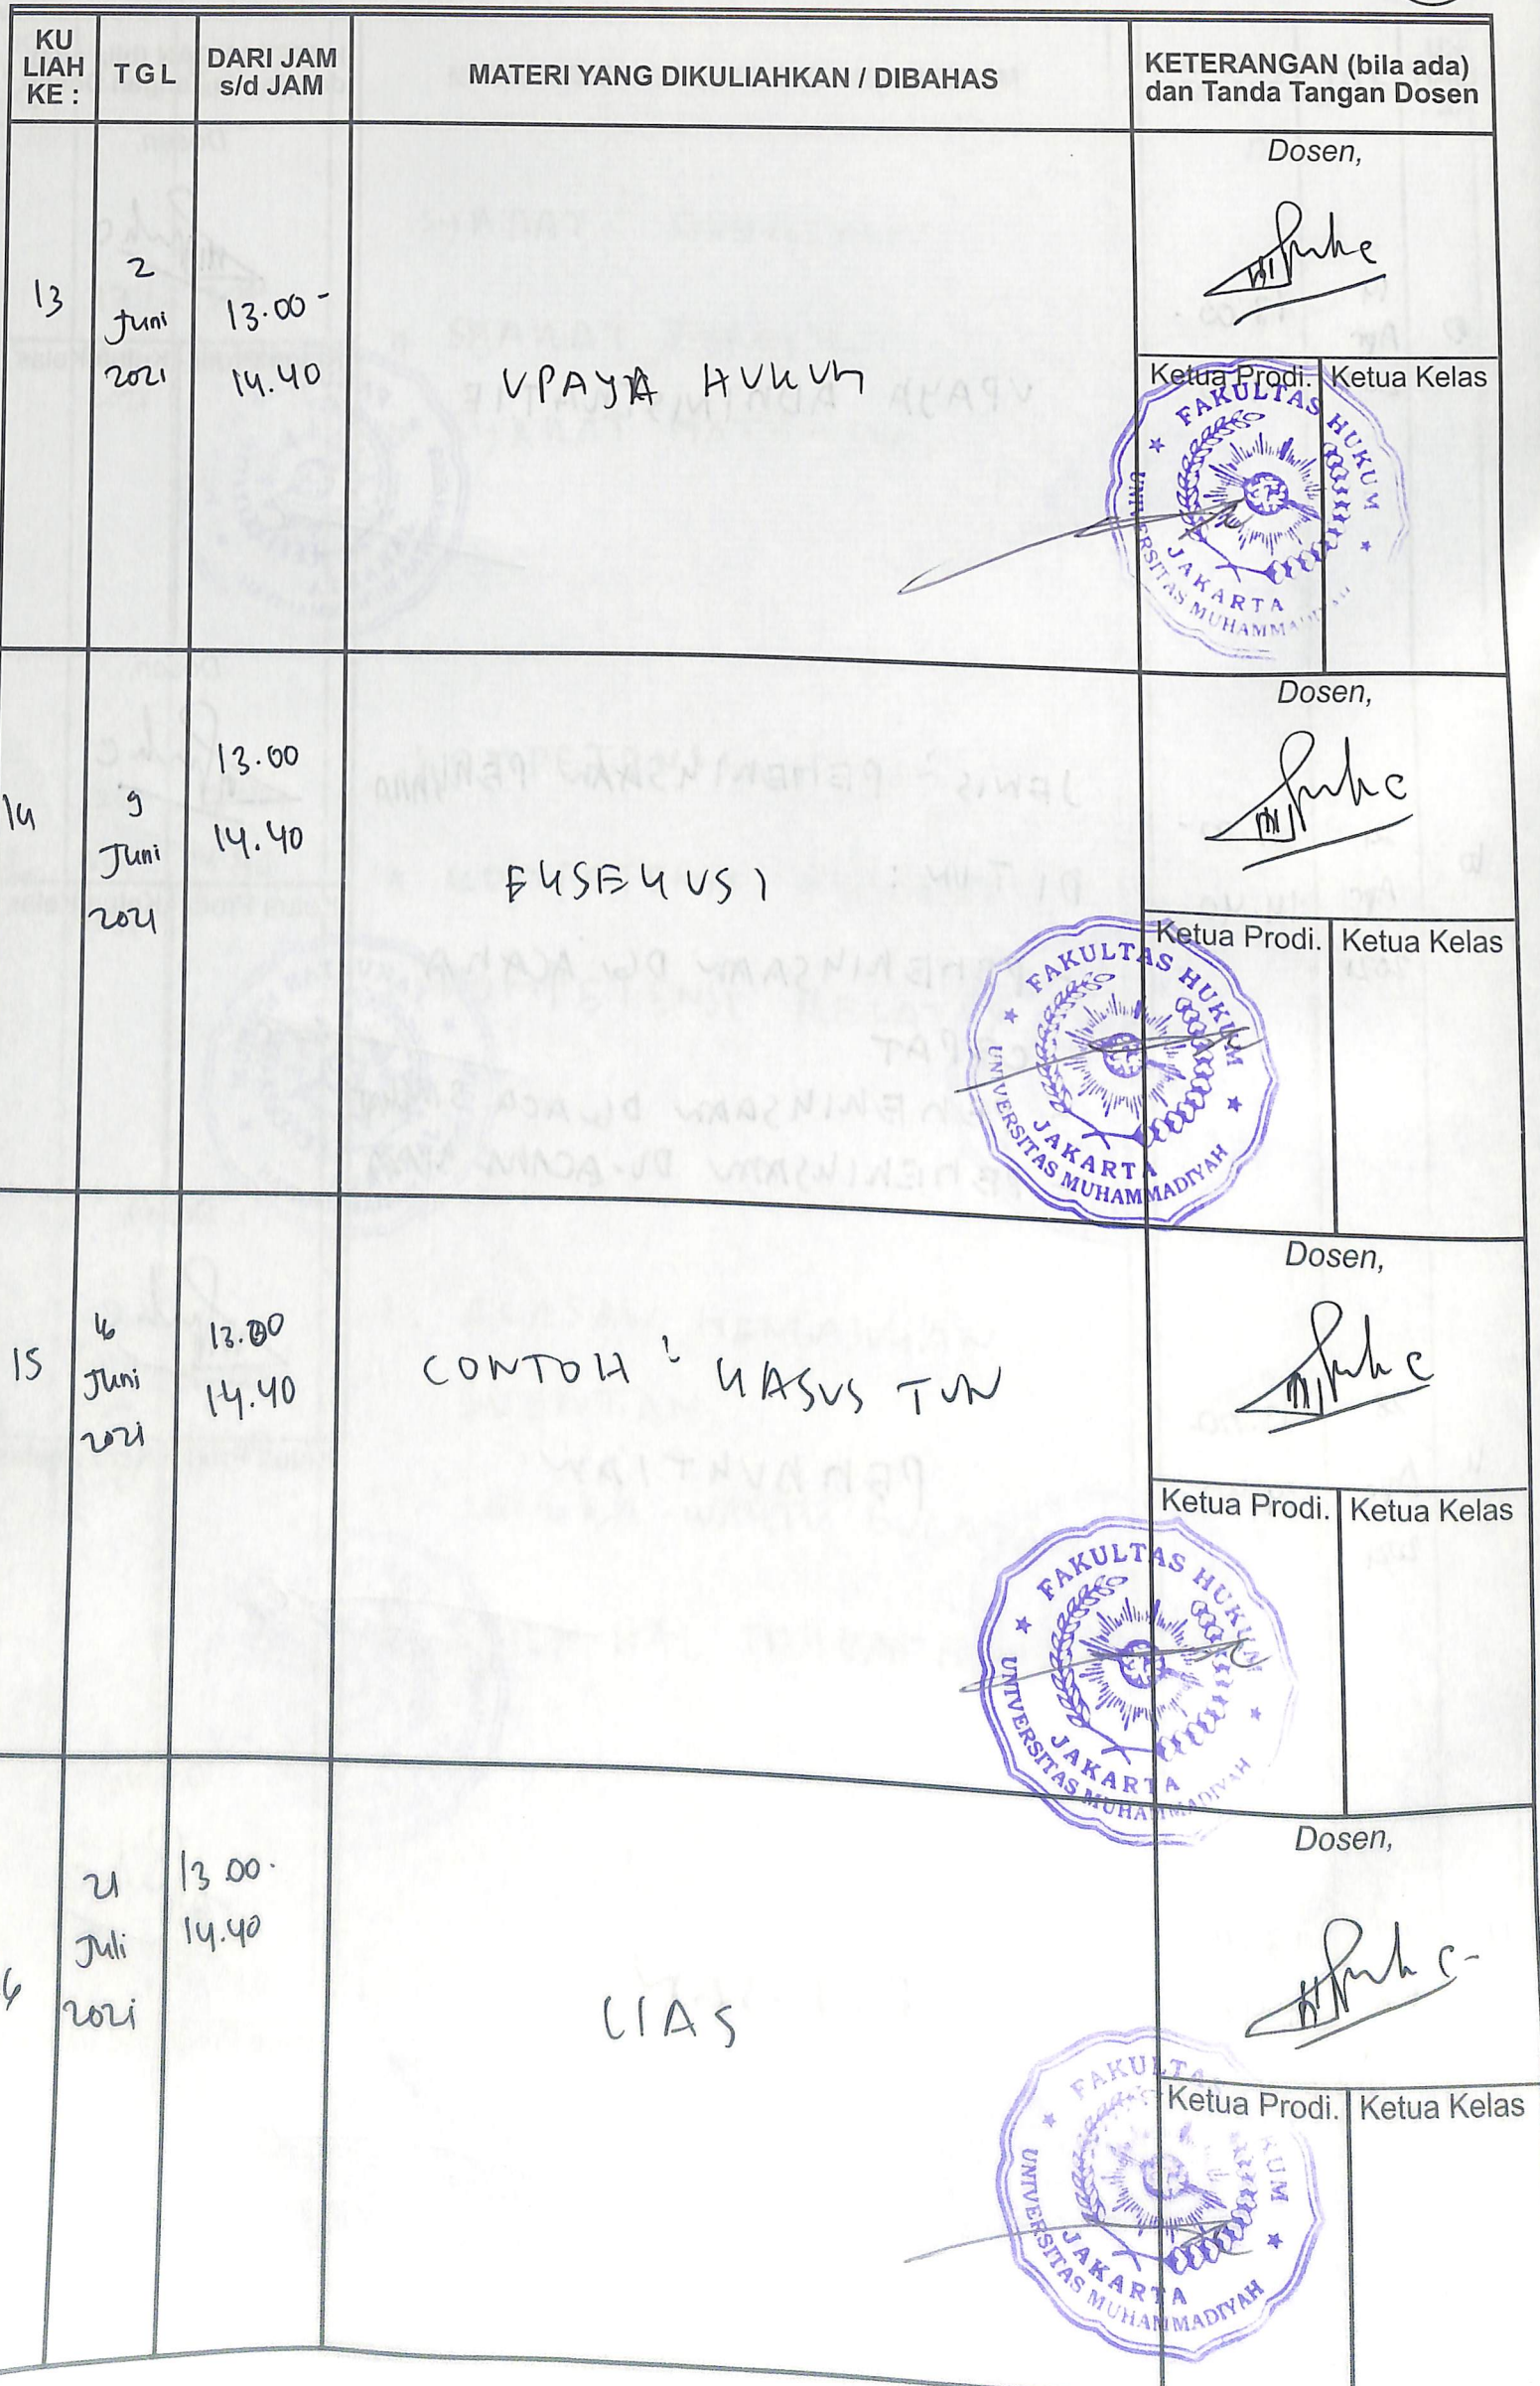 KU
LIAH
KE :
TGL
DARI JAM
s/d JAM
MATERI YANG DIKULIAHKAN / DIBAHAS
KETERANGAN (bila ada)
dan Tanda Tangan Dosen
13
2
Juni
2021
13.00 -
14.40
UPAYA HUKUM
Dosen,
Ketua Prodi.
Ketua Kelas
FAKULTAS HUKUM
JAKARTA
UNIVERSITAS MUHAMMADIYAH
14
9
Juni
2021
13.00
14.40
EKSEKUSI
Dosen,
Ketua Prodi.
Ketua Kelas
FAKULTAS HUKUM
JAKARTA
UNIVERSITAS MUHAMMADIYAH
15
16
Juni
2021
13.00
14.40
CONTOH² KASUS TUN
Dosen,
Ketua Prodi.
Ketua Kelas
FAKULTAS HUKUM
JAKARTA
UNIVERSITAS MUHAMMADIYAH
6
21
Juli
2021
13.00.
14.40
UAS
Dosen,
Ketua Prodi.
Ketua Kelas
FAKULTAS HUKUM
JAKARTA
UNIVERSITAS MUHAMMADIYAH